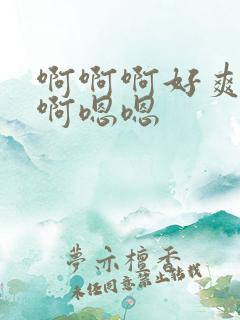 啊啊啊好爽
啊嗯嗯
夢示檀香
未经同意禁止转载